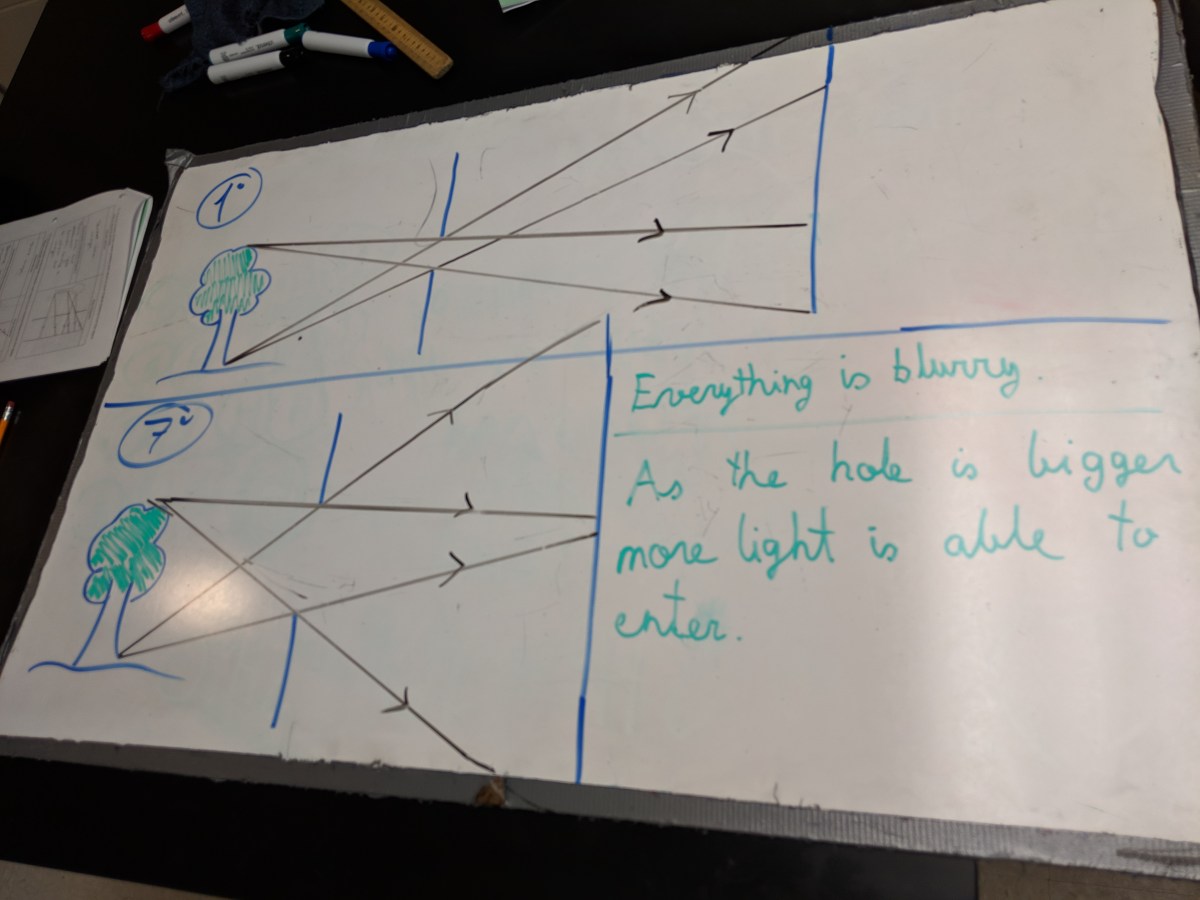 1°
Everything is blurry.
As the hole is bigger
more light is able to
enter.